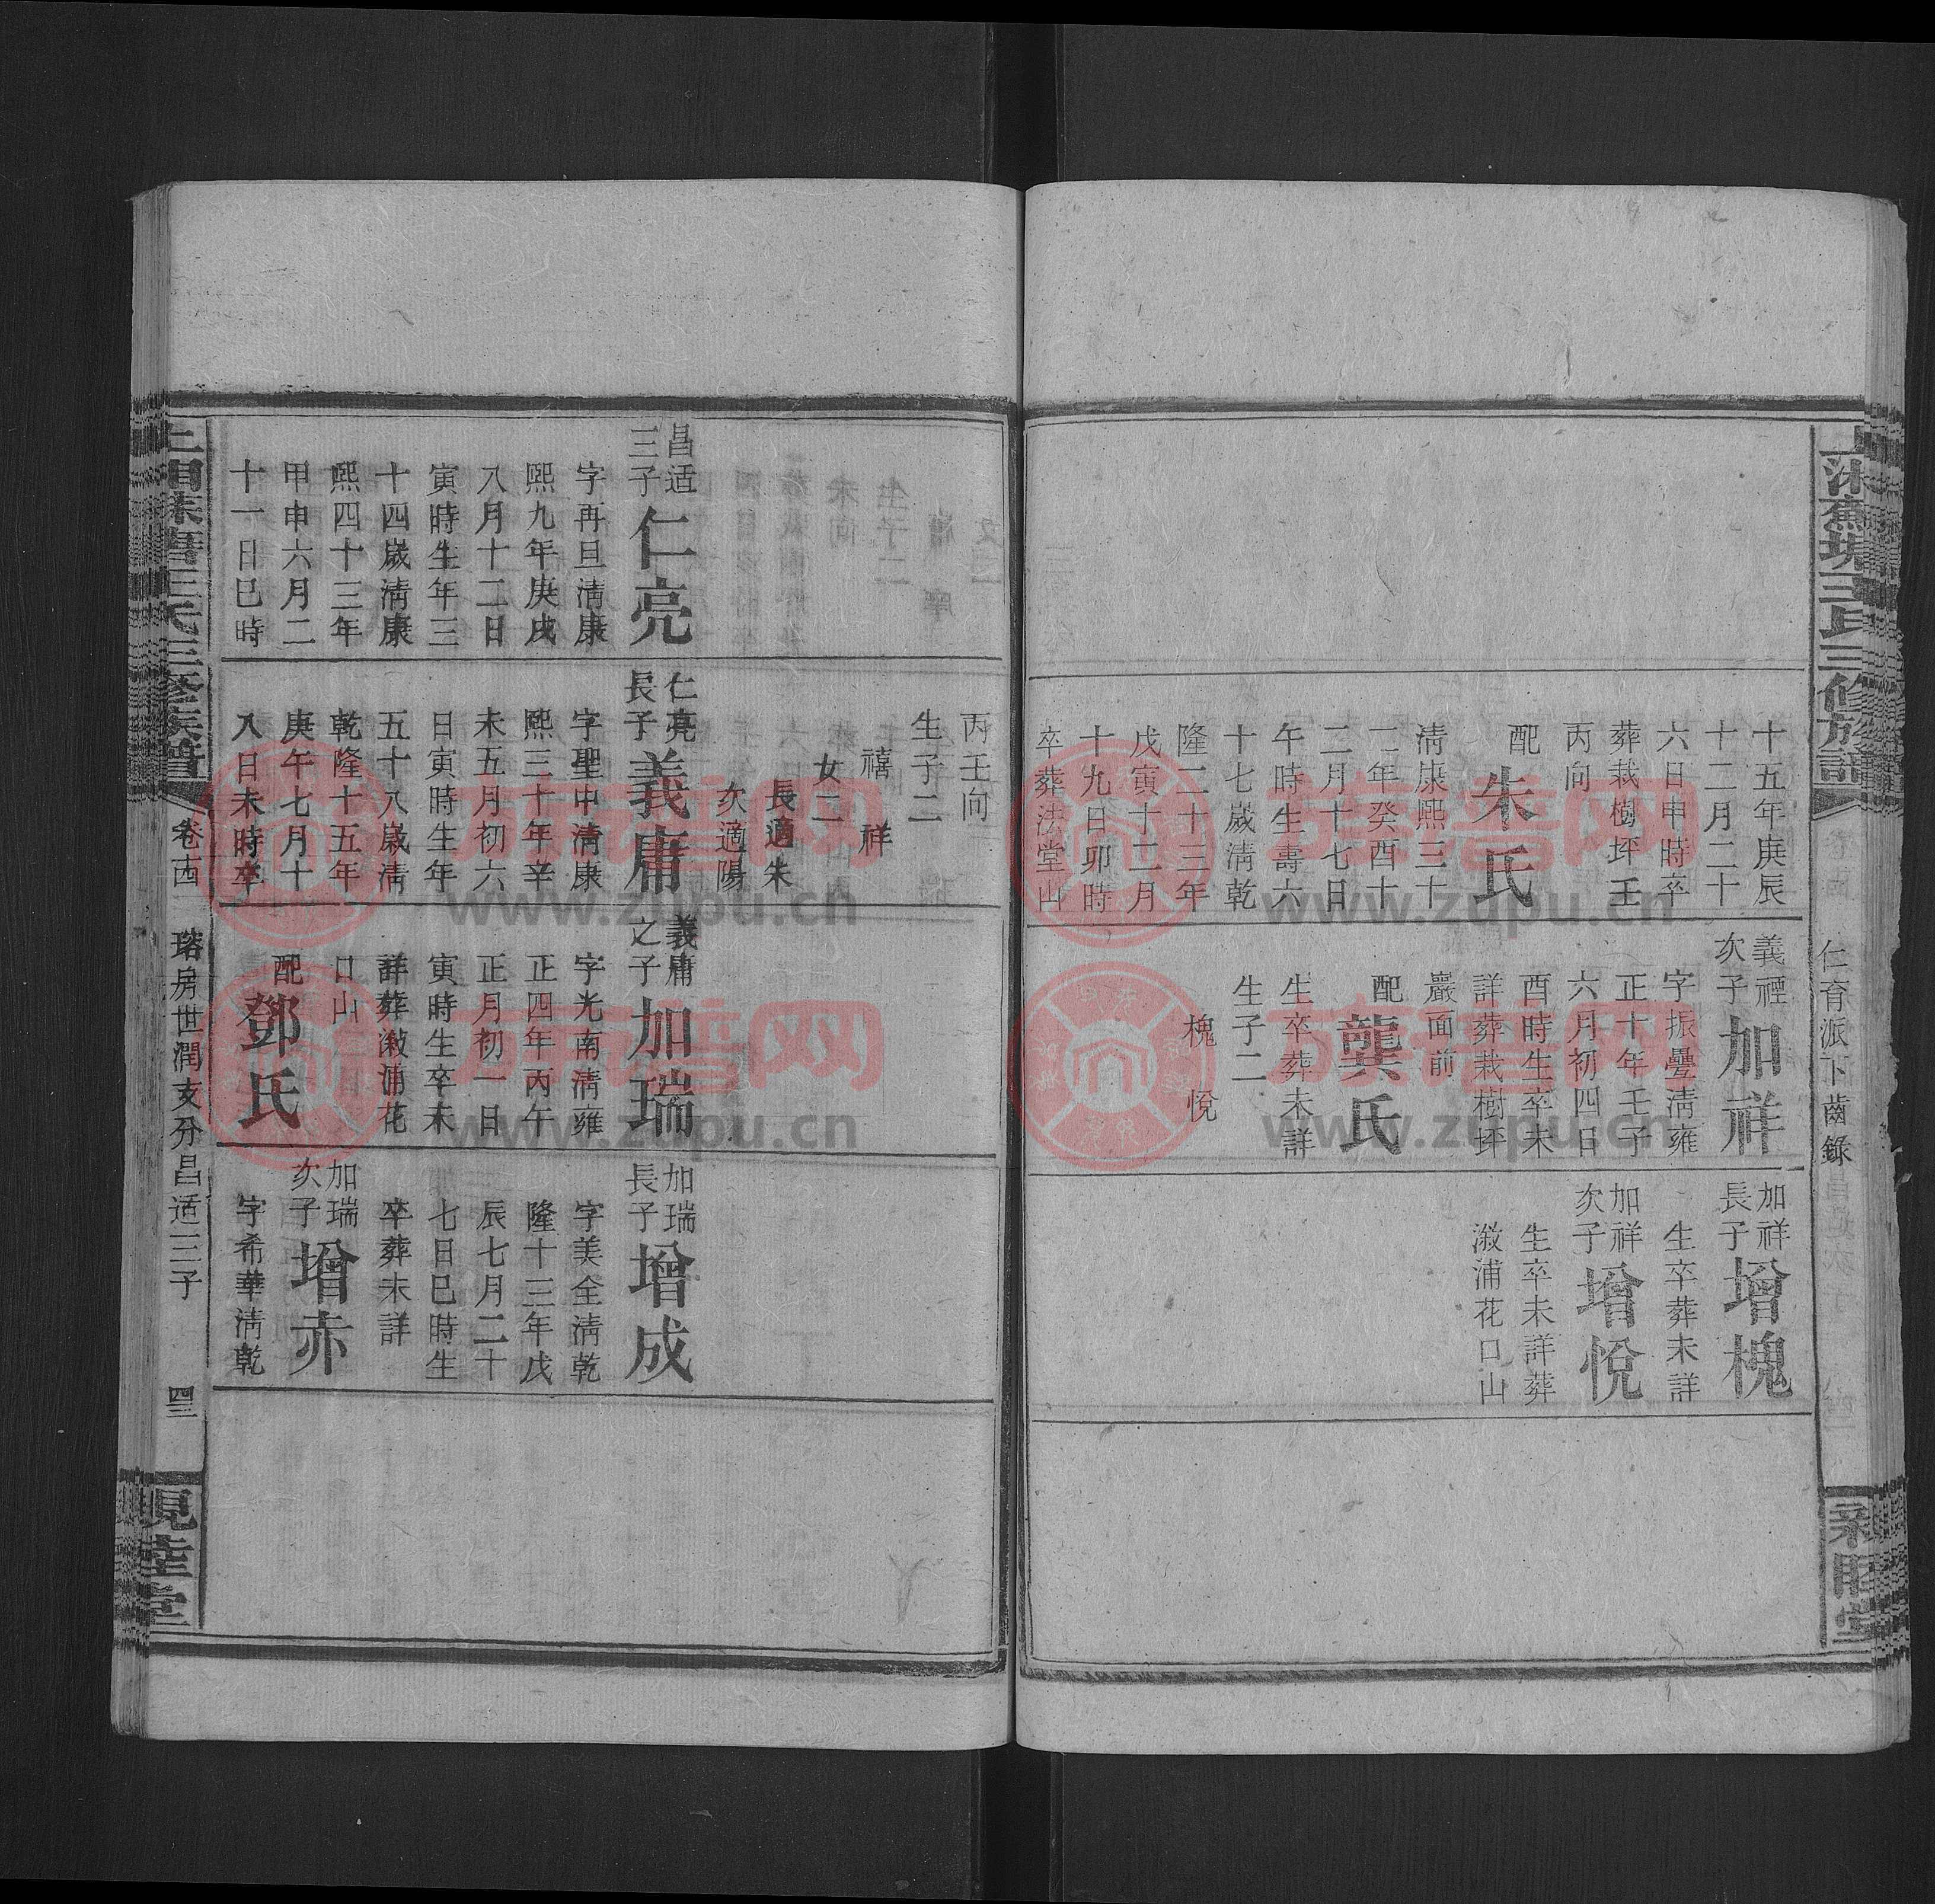 仁育派下齒錄
十五年庚辰
十二月二十
六日申時卒
葬栽樹坪壬
丙向
配
朱氏
清康熙三十
二年癸酉十
二月十七日
午時生壽六
十七歲清乾
隆二十三年
戊寅十二月
十九日卯時
卒葬法堂山
義禋
次子
加祥
字振疊清雍
正十年壬子
六月初四日
酉時生卒未
詳葬栽樹坪
嚴面前
配
龔氏
生卒葬未詳
生子二
槐 悅
加祥
長子
增槐
生卒葬未詳
加祥
次子
增悅
生卒未詳葬
漵浦花口山
丙壬向
生子二
禧 祥
女二
長適朱
次適陽
昌适
三子
仁亮
字再旦清康
熙九年庚戌
八月十二日
寅時生年三
十四歲清康
熙四十三年
甲申六月二
十一日巳時
仁亮
長子
義庸
字聖中清康
熙三十年辛
未五月初六
日寅時生年
五十八歲清
乾隆十五年
庚午七月十
八日未時卒
義庸
之子
加瑞
字光南清雍
正四年丙午
正月初一日
寅時生卒未
詳葬漵浦花
口山
配
鄧氏
加瑞
長子
增成
字美全清乾
隆十三年戊
辰七月二十
七日巳時生
卒葬未詳
加瑞
次子
增赤
字希華清乾
瑢房世潤支分昌适三子
族譜网
www.zupu.cn
族譜网
www.zupu.cn
族譜网
www.zupu.cn
族譜网
www.zupu.cn